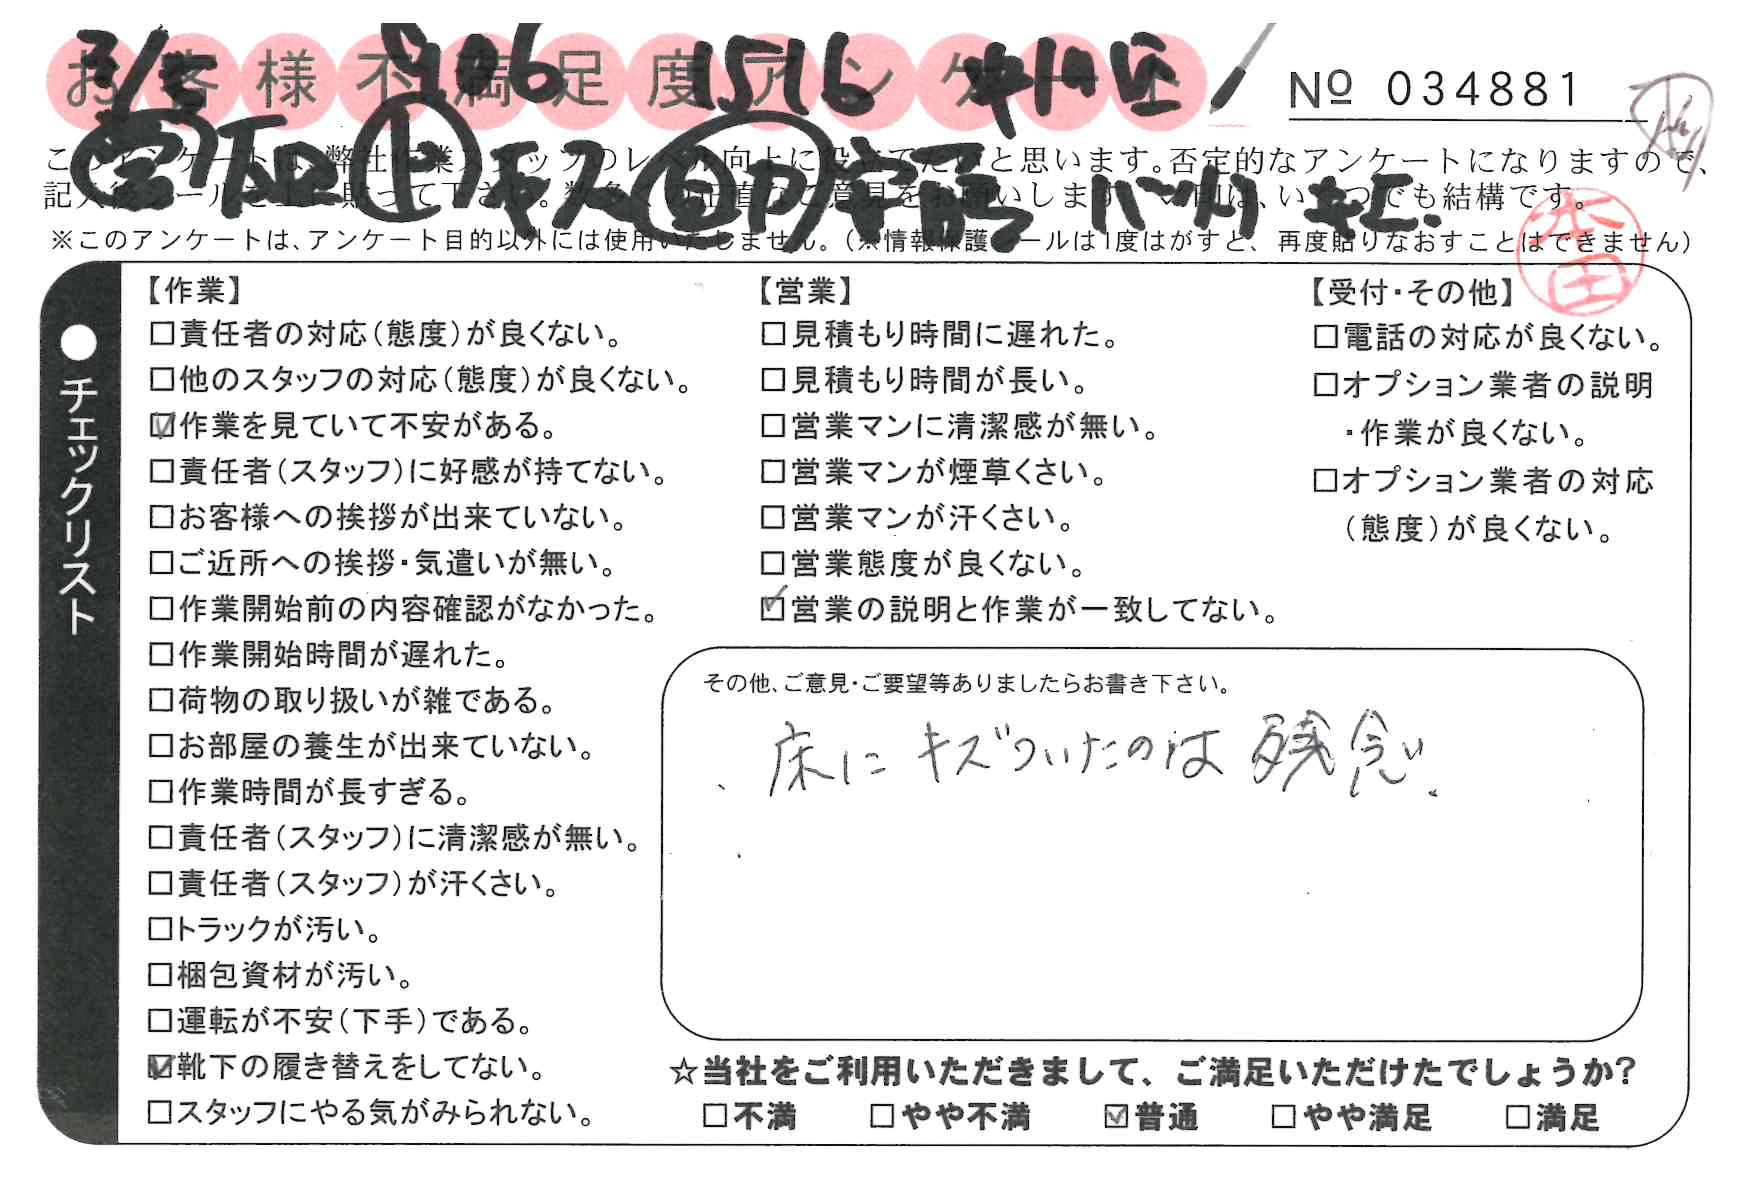 お客様不満足度アンケート
3/5 9126 1516 中川区
№ 034881
このアンケートは、弊社作業スタッフのレベル向上に役立てたいと思います。否定的なアンケートになりますので、
記入後シールを上に貼って下さい。数多くの正直なご意見をお願いします。
いくつでも結構です。
※このアンケートは、アンケート目的以外には使用いたしません。(※情報保護シールは1度はがすと、再度貼りなおすことはできません)
本田
●チェックリスト
【作業】
□責任者の対応(態度)が良くない。
□他のスタッフの対応(態度)が良くない。
☑作業を見ていて不安がある。
□責任者(スタッフ)に好感が持てない。
□お客様への挨拶が出来ていない。
□ご近所への挨拶・気遣いが無い。
□作業開始前の内容確認がなかった。
□作業開始時間が遅れた。
□荷物の取り扱いが雑である。
□お部屋の養生が出来ていない。
□作業時間が長すぎる。
□責任者(スタッフ)に清潔感が無い。
□責任者(スタッフ)が汗くさい。
□トラックが汚い。
□梱包資材が汚い。
□運転が不安(下手)である。
☑靴下の履き替えをしてない。
□スタッフにやる気がみられない。
【営業】
□見積もり時間に遅れた。
□見積もり時間が長い。
□営業マンに清潔感が無い。
□営業マンが煙草くさい。
□営業マンが汗くさい。
□営業態度が良くない。
☑営業の説明と作業が一致してない。
【受付・その他】
□電話の対応が良くない。
□オプション業者の説明
・作業が良くない。
□オプション業者の対応
(態度)が良くない。
その他、ご意見・ご要望等ありましたらお書き下さい。
床にキズついたのは残念。
☆当社をご利用いただきまして、ご満足いただけたでしょうか?
□不満 □やや不満 ☑普通 □やや満足 □満足